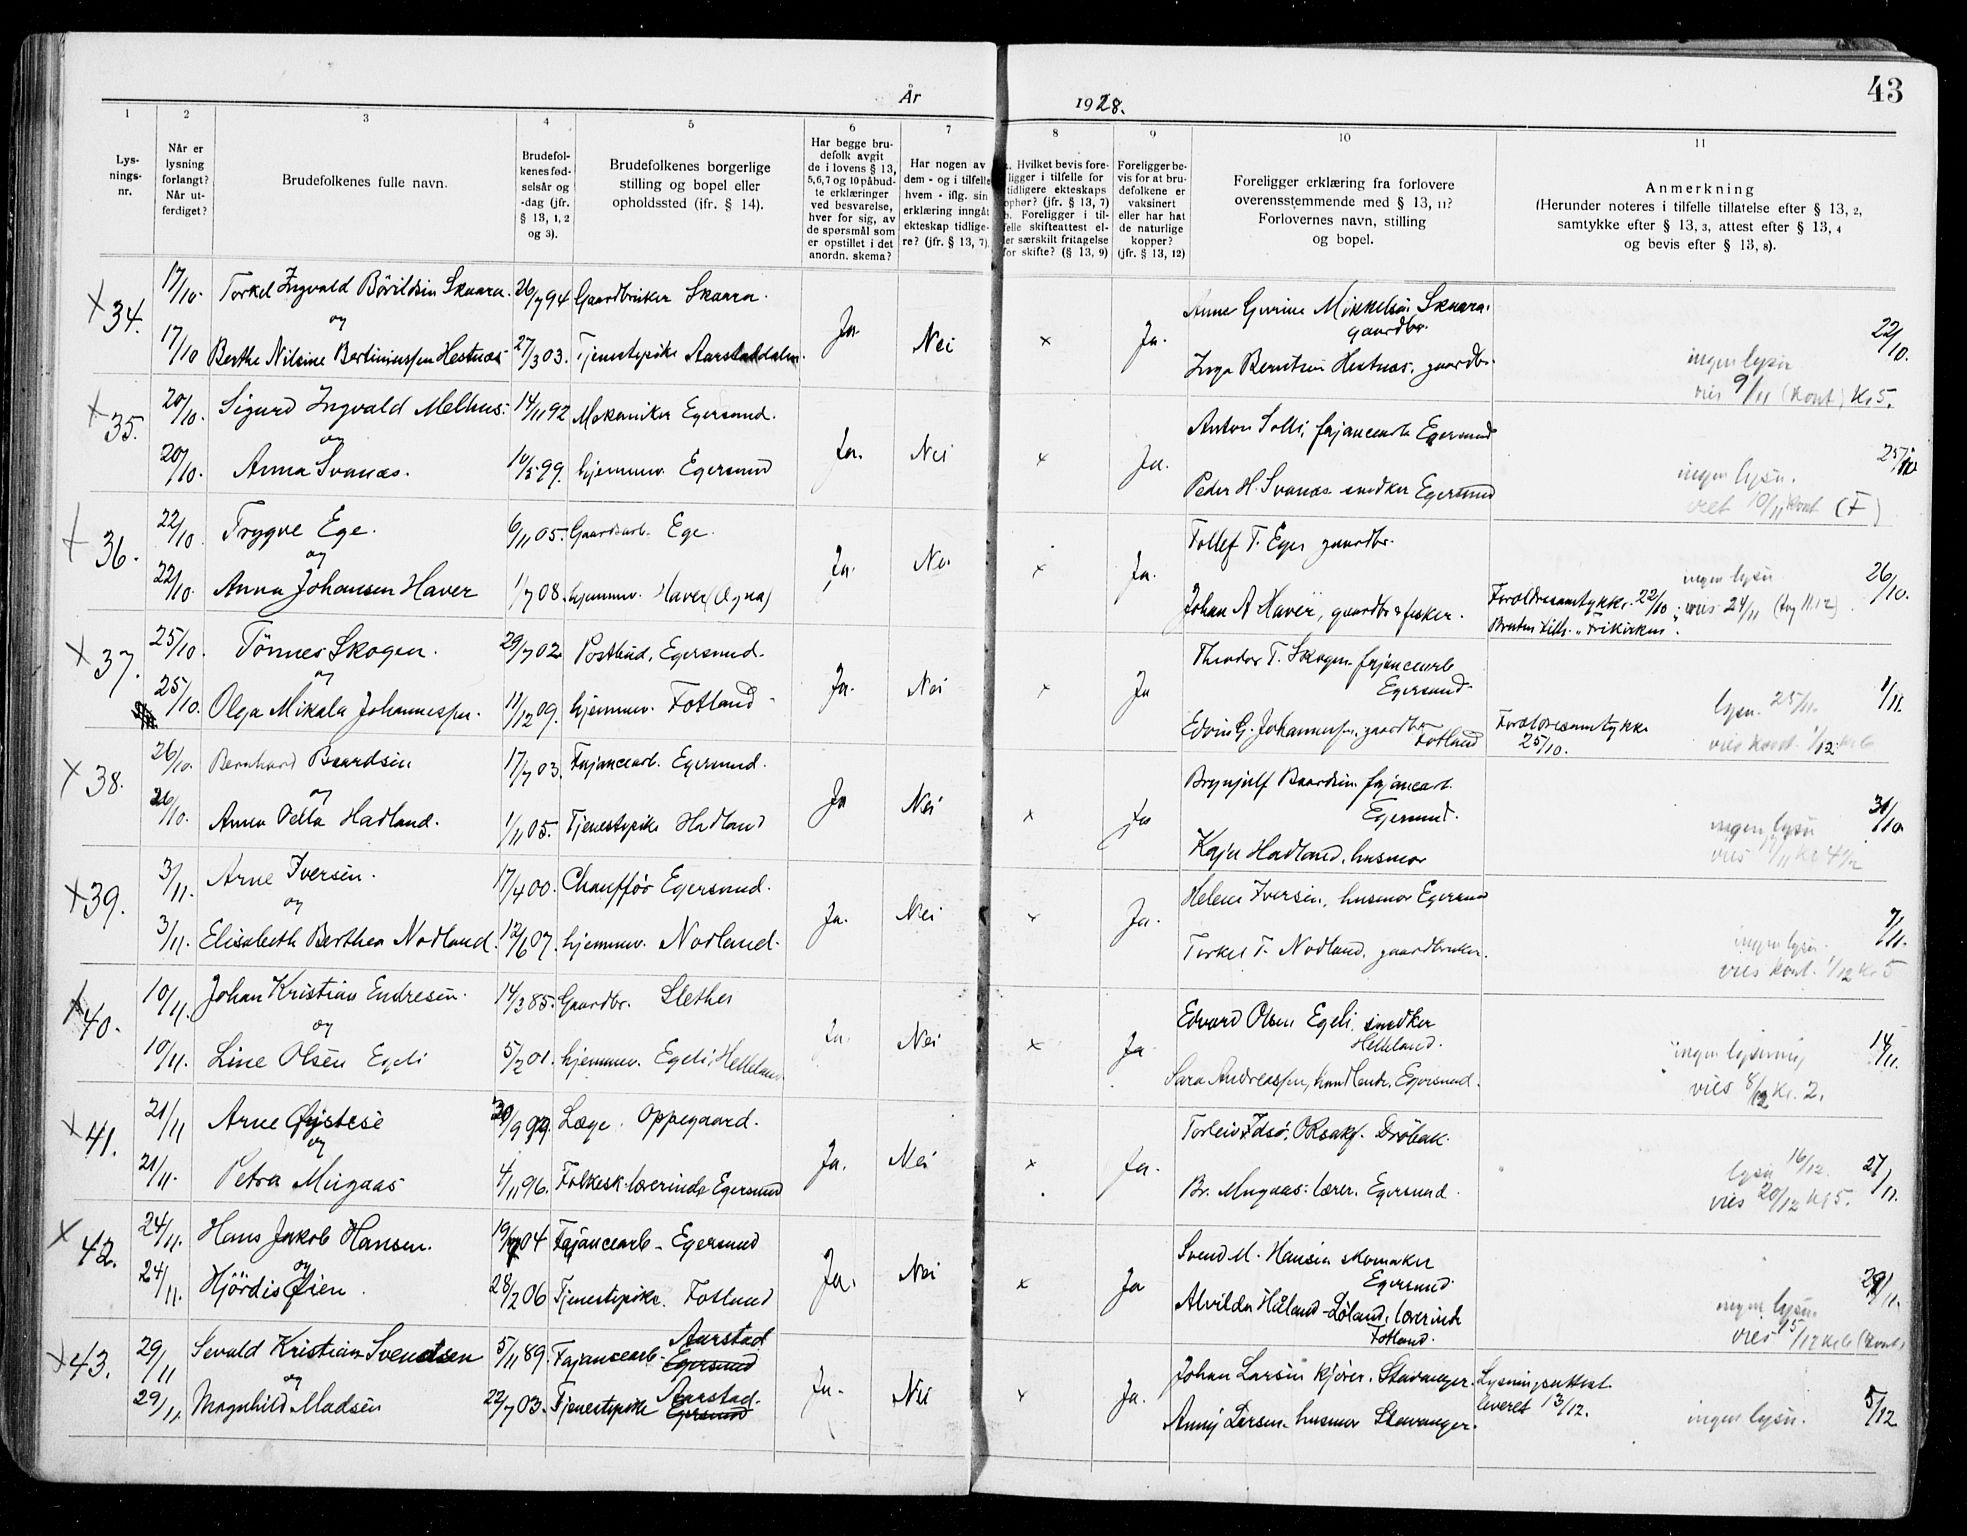 År 1928.
43
1 2 3 4 5 6 7 8 9 10 11
Lys-
nings-
nr.
Når er
lysning
forlangt?
Når ut-
ferdiget?
Brudefolkenes fulle navn.
Brudefol-
kenes fød-
selsår og
-dag (jfr.
§ 13, 1, 2
og 3).
Brudefolkenes borgerlige
stilling og bopel eller
opholdssted (jfr. § 14).
Har begge bru-
defolk avgit
de i lovens § 13,
5, 6, 7 og 10 påbud-
te erklæringer
ved besvarelse,
hver for sig, av
de spørsmål som
er opstillet i det
anordn. skema?
Har nogen av
dem - og i tilfelle
hvem - iflg. sin
erklæring inngåt
ekteskap tidlige-
re? (jfr. § 13, 7).
Hvilket bevis fore-
ligger i tilfelle for
tidligere ekteskaps
ophør? (jfr. § 13, 7)
b. Foreligger i til-
felle skifteattest el-
ler særskilt fritagelse
for skifte? (§ 13, 9)
Foreligger be-
vis for at bru-
defolkene er
vaksinert
eller har hat
de naturlige
kopper?
(jfr. § 13, 12)
Foreligger erklæring fra forlovere
overensstemmende med § 13, 11?
Forlovernes navn, stilling
og bopel.
Anmerkning
(Herunder noteres i tilfelle tillatelse efter § 13, 2,
samtykke efter § 13, 3, attest efter § 13, 4
og bevis efter § 13, 8).
x 34. 17/10. Torkel Ingvald Bårdsen Skaara. 26/7 94 Gaardbruker Skaara. Anne Gurine Mikkelsen Skaara.
og Ja. Nei x Ja. gaardbr. 22/10.
17/10 Berthe Nilsine Bertiniussen Hestnes 27/3 03. Tjenestepike Aarstaddalen. Inga Berntsen Hestnes, gaardbr. ingen lysn
vies 9/11 (kont) kl 5.
x 35. 20/10. Sigurd Ingvald Melhus. 14/11 92 Mekaniker Egersund. Anton Solli, fajancearb Egersund
og Ja. Nei x Ja. 25/10
20/10. Anna Svanæs. 10/5 99. hjemmev. Egersund Peder H. Svanæs snedker Egersund ingen lysn.
viet 10/11 kont (F)
x 36. 22/10. Trygve Ege. 6/11 05. Gaardsarb. Ege. Tollef T. Ege gaardbr.
og Ja. Nei x Ja. ingen lysn 26/10.
22/10. Anna Johansen Haver 1/7 08. hjemmev. Haver (Ogna) Johan A Haver, gaardbr & fisker. Foreldresamtykke 22/10. vies 24/11
Bruden tilh. "Frikirken".
x 37. 25/10. Tönnes Skogen. 29/7 02 Postbud, Egersund. Theodor T. Skogen fajancearb
og Ja. Nei x Ja Egersund. 1/11.
25/10. Olga Mikala Johannessen. 11/12 09. hjemmev. Fotland Edvin G. Johannessen, gaardbr. Fotland Foreldresamtykke lysn. 25/11.
25/10. vies kont. 1/12 kl 6
x 38. 26/10. Bernhard Baardsen 17/7 03. Fajancearb. Egersund. Brynjulf Baardsen fajancearb.
og Ja Nei x Ja Egersund. 31/10
26/10. Anna Oella Hadland. 1/11 05. Tjenestepike Hadland Kaja Hadland, husmor ingen lysn
x 39. 3/11. Arne Iversen. 17/4 00. Chauffør Egersund. Helene Iversen, husmor Egersund
og Ja. Nei x Ja. 7/11.
3/11. Elisabeth Berthea Nodland. 12/6 07. hjemmev. Nodland. Torkel T. Nodland, gaardbruker. ingen lysn.
vies kont. 1/12 kl 5
x 40. 10/11. Johan Kristian Endresen. 14/3 85. Gaardbr. Slethei Edvard Olsen Egeli, snedker
og Ja. Nei x Ja Helleland. 14/11.
10/11. Line Olsen Egeli 5/2 01. hjemmev. Egeli, Helleland Sara Andreassen, handlende, Egersund. ingen lysning
vies 8/12 kl. 2.
x 41. 21/11 Arne Øystese 30/9 99. Læge. Oppegaard. Torleiv Idsø, O.Rsakf. Drøbak.
og Ja. Nei x Ja. 27/11.
21/11. Petra Mugaas 4/11 96. Folkesk.lærerinde Egersund Br. Mugaas. lærer, Egersund. lysn 16/12.
vies 20/12 kl 5.
x 42. 24/11. Hans Jakob Hansen. 19/7 04 Fajancearb - Egersund Svend M. Hansen skomaker
og Ja. Nei x Ja Egersund. 29/11.
24/11. Hjördis Øien. 28/2 06 Tjenestepike. Fotland Alvilda Håland-Löland, lærerinde ingen lysn.
Fotland. vies 15/12 kl 6 (kont)
x 43. 29/11 Sevald Kristian Svendsen 5/11 89. Fajancearb. Aarstad Egersund Johan Larsen kjører, Stavanger. Lysningsattest
og Ja. Nei x Ja. leveret 13/12. 5/12
29/11. Magnhild Madsen 22/7 03. Tjenestepike Aarstad. Egersund Anny Larsen husmor Stavanger. ingen lysn.